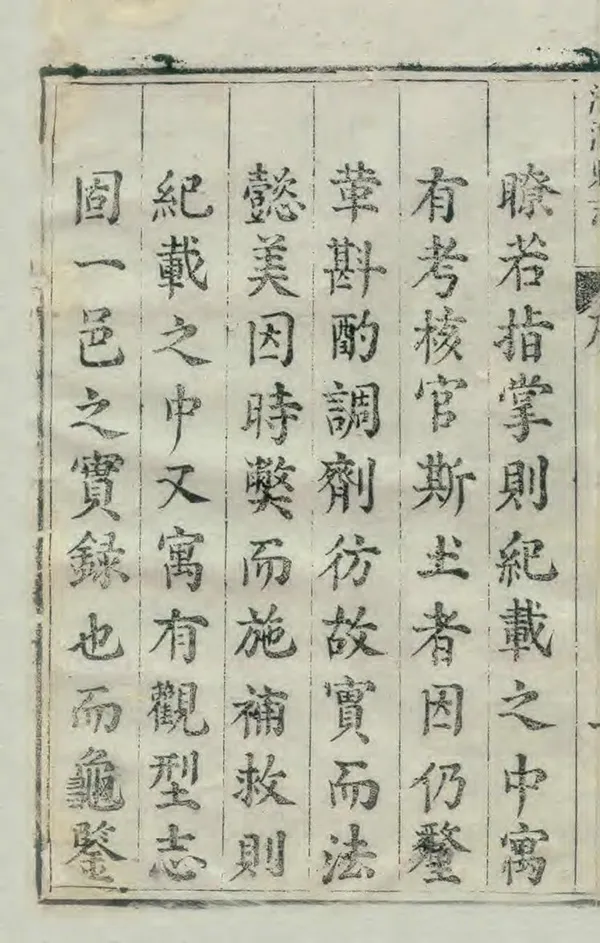 瞭若指掌則紀載之中寓
有考核官斯土者因仍釐
革斟酌調劑彷故實而法
懿美因時弊而施補救則
紀載之中又寓有觀型志
固一邑之實録也而龜鑒